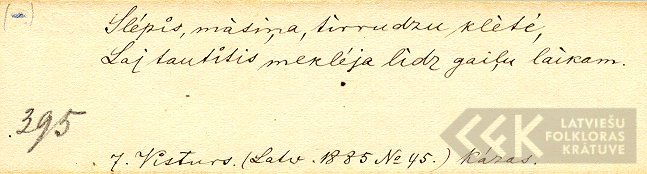 (-)
Slépis, màsiņa, tirrudzu klèté,
Laj tautitis mekléja lìdz gaiļu làikam.
395
7. Visturs. (Latw. 1885 No 45.) Kázas.
LATVIEŠU
FOLKLORAS
KRĀTUVE